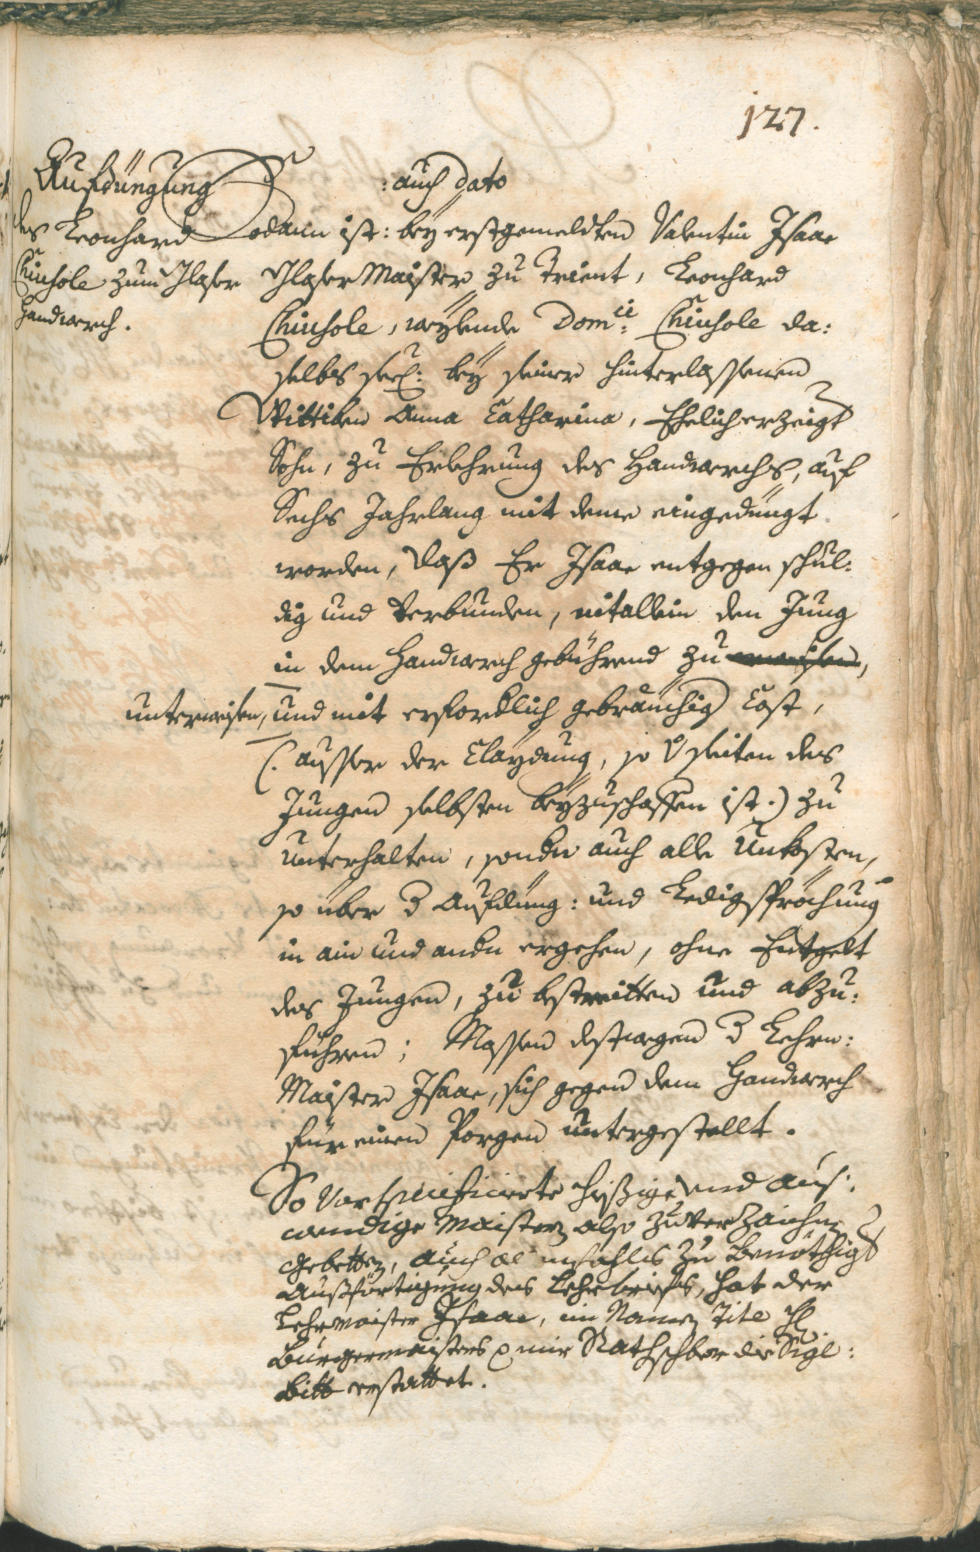 127.
Aufdüngung
des Leonhard
Chiusole zum Glaser
Handwerch.
: auch dato
Sodann ist: bey erstgemeldten Valentin Isaac
Glaser Maister zu Trient, Leonhard
Chiusole, weylende Domci: Chiusole da:
selbs seel: bey seiner hinterlassenen
Wittiben Anna Catharina, Ehelich erzeigt
Sohn, zu Erlehrung des Handwerchs, auf
Sechs Jahrlang mit deme eingedüngt
worden, daß Er Isaac entgegen schul:
dig und verbunden, nitallein den Jung
in dem Handwerch gebührend zu
unterweisen, und mit erforderlich gebräuchig Cost,
(: ausser der Claydung, so v seiten des
Jungen selbsten beyzuschaffen ist :) zu
unterhalten, sondern auch alle Unkosten,
so über d Aufdüng: und Ledigspröchung
in ain und andern ergehen, ohne Entgelt
des Jungen, zu bestreitten und abzu:
führen; Massen destwegen d Lehrn:
Maister Isaac, sich gegen dem Handwerch
für einen Porgen untergestellt.
So Vorspecificierte hiesige und aus:
wendige Maister also zuverzaichnen
gebetten, auch zu benöthigt
Außförtigung des Lehrbriefs, hat der
Lehrmaister Isaac, im Namen Titl H
Burgermaisters p mir Rathschber die Sigl:
bitt erstattet.